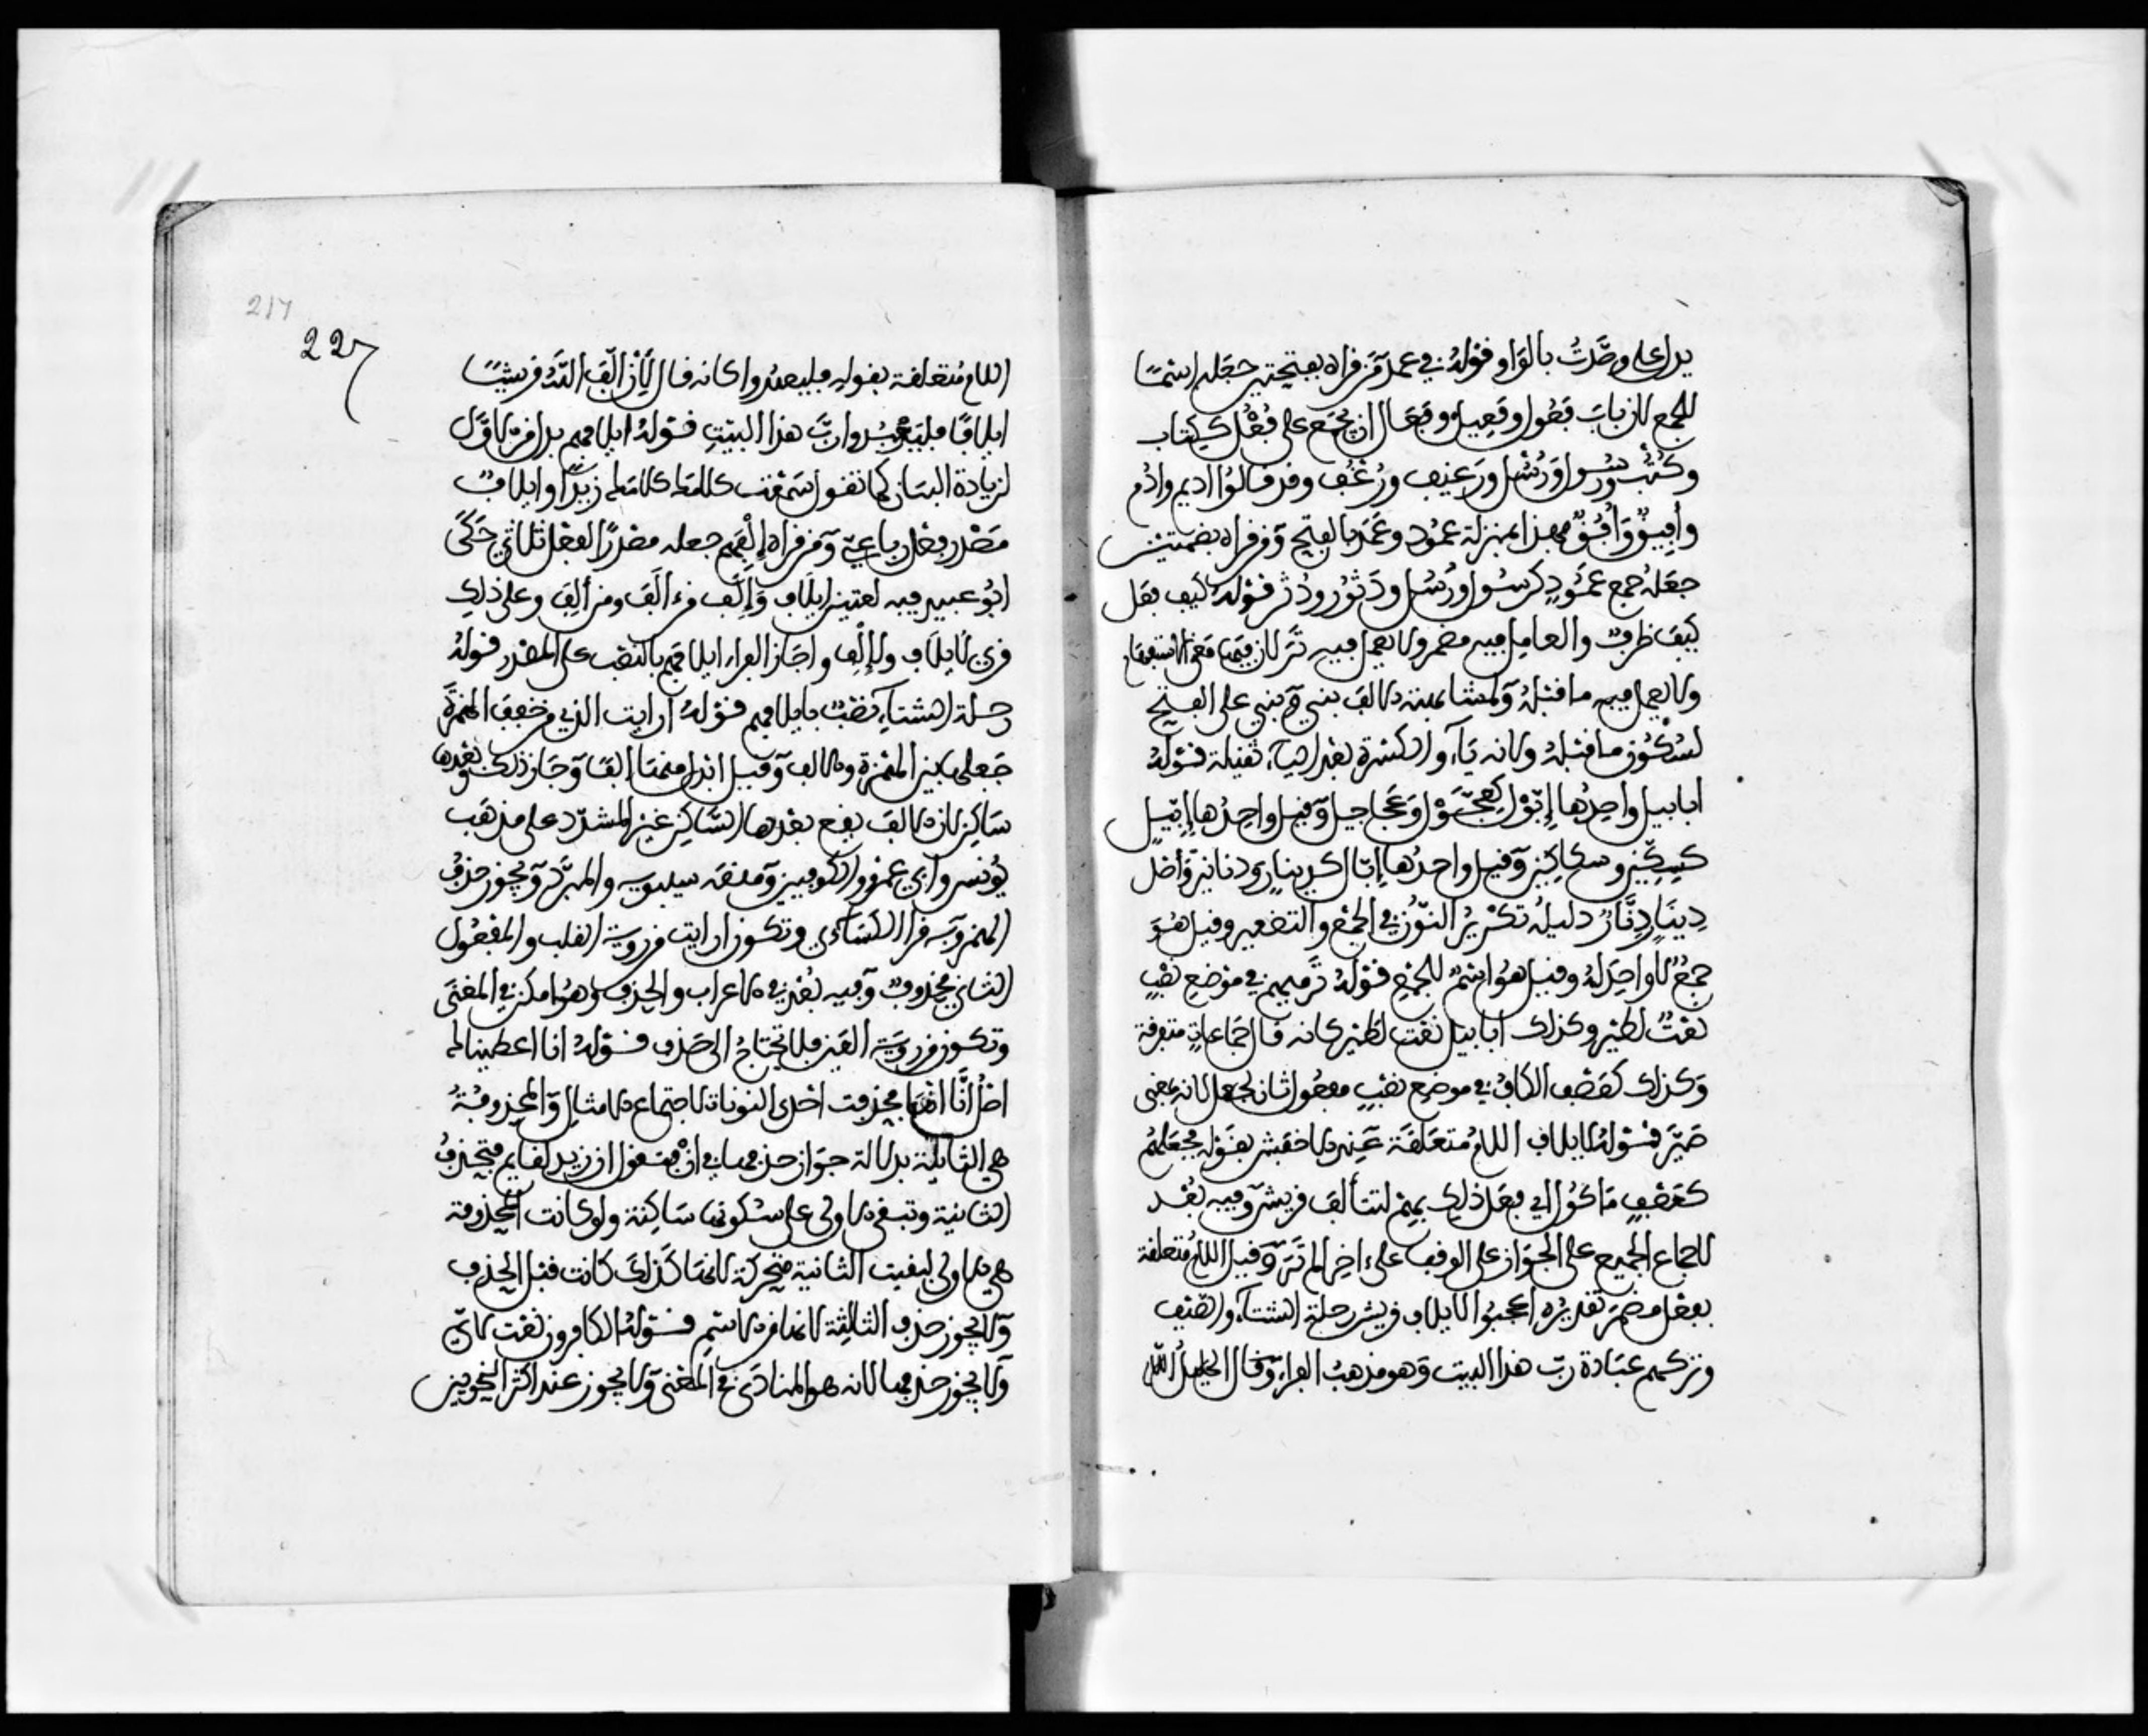 يدل على وصدت بالواو قوله في عمد من قراه بفتحتين جعله اسما
للجمع لان باب فعول وفعيل وفعال ان يجمع على فعل ككتاب
وكتب ورسول ورسل ورغيف ورغف وقد قالوا اديم وادم
وافيق وافق فهذا بمنزلة عمود وعمد بالفتح ومن قراه بضمتين
جعله جمع عمود كرسول ورسل ودثور ودثر قوله كيف فعل
كيف ظرف والعامل فيه مضمر ولا يعمل فيه تر لان فيها معنى الاستفهام
ولا يعمل فيه ما قبله ولمشابهته الالف بني وبني على الفتح
لسكون ما قبله ولانه ياء والكسرة بعد الياء ثقيلة قوله
ابابيل واحدها إبول كعجول وعجاجيل وقيل واحدها إبيل
كسكين وسكاكين وقيل واحدها إبال كدينار ودنانير واصل
دينار دنار دليله تكرير النون في الجمع والتصغير وقيل هو
جمع لا واحد له وقيل هو اسم للجمع قوله ترميهم في موضع نصب
نعت لطير وكذلك ابابيل نعت لطير كانه قال جماعات متفرقة
وكذلك كعصف الكاف في موضع نصب مفعول ثان لجعل لانه بمعنى
صير قوله لايلاف اللام متعلقة عند الاخفش بقوله فجعلهم
كعصف ماكول اي فعل ذلك بهم لتتألف قريش وفيه بعد
لاجماع الجميع على الجواز على الوقف على ءاخر الم تر وقيل اللام متعلقة
بفعل مضمر تقديره اعجبوا لايلاف قريش رحلة الشتاء والصيف
وتركهم عبادة رب هذا البيت وهو مذهب الفراء وقال الخليل
217
227
اللام متعلقة بقوله فليعبدوا كانه قال لأن الف الله قريشا
ايلافا فليعبدوا رب هذا البيت قوله ايلافهم بدل من الاول
لزيادة البيان كما تقول سمعت كلامك كلامك زيدا وايلاف
مصدر فعل رباعي ومن قراه إلفهم جعله مصدرا لفعل ثلاثي حكى
ابو عبيد فيه لغتين ايلاف وإلف من ءالف ومن ألف وعلى ذلك
قرئ لايلاف ولإلف واجاز الفراء ايلافهم بالنصب على المصدر قوله
رحلة الشتاء نصب بايلافهم قوله ارايت الذي من خفف الهمزة
جعلها بين الهمزة والالف وقيل ابدل منها الفا وجاز ذلك وبعدها
ساكن لان الالف يقع بعدها الساكن غير المشدد على مذهب
يونس وابي عمرو والكوفيين ومنعه سيبويه والمبرد ويجوز حذف
الهمز وبه قرا الكسائي وتكون ارايت من روية القلب والمفعول
الثاني محذوف وفيه بعد في الاعراب والحذف وهو امكن في المعنى
وتكون من روية العين فلا تحتاج الى حذف قوله انا اعطيناك
اصل إنا إننا فحذفت احدى النونات لاجتماع الامثال والمحذوفة
هي الثانية بدلالة جواز حذفها في ان فتقول ان زيد لقايم فتحذف
الثانية وتبقي الاولى على سكونها ساكنة ولو كانت المحذوفة
هي الاولى لبقيت الثانية متحركة لانها كذلك كانت قبل الحذف
ولا يجوز حذف الثالثة لانها من الاسم قوله الكافرون نعت لاي
ولا يجوز حذفها لانه هو المنادى في المعنى ولا يجوز عند اكثر النحويين